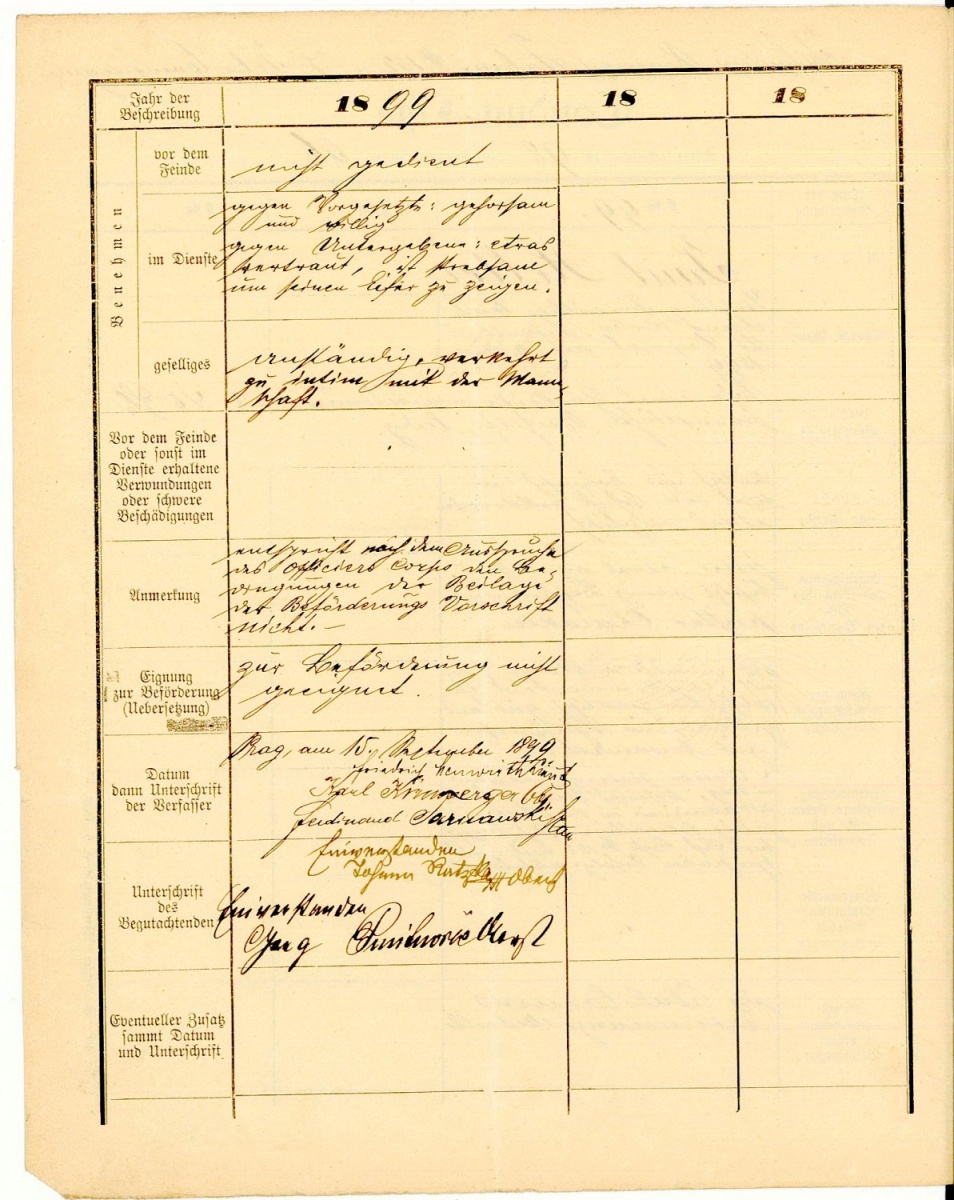 Jahr der
Beschreibung
1899
18
18
Benehmen
vor dem
Feinde
nicht gedient
im Dienste
gegen Vorgesetzte: gehorsam
und willig
gegen Untergebene: etwas
vertraut, ist strebsam
um seinen Eifer zu zeigen.
geselliges
anständig, verkehrt
zu intim mit der Mann-
schaft.
Vor dem Feinde
oder sonst im
Dienste erhaltene
Verwundungen
oder schwere
Beschädigungen
Anmerkung
entspricht nach dem Ausspruche
des Officiers Corps den Be-
dingungen der Beilage
der Beförderungs Vorschrift
nicht.-
Eignung
zur Beförderung
(Uebersetzung)
zur Beförderung nicht
geeignet.
Datum
dann Unterschrift
der Verfasser
Prag, am 15. September 1899
Friedrich
Karl
Ferdinand Tarnawski
Unterschrift
des
Begutachtenden
Einverstanden
Johann Oberst
Einverstanden
Oberst
Eventueller Zusatz
sammt Datum
und Unterschrift